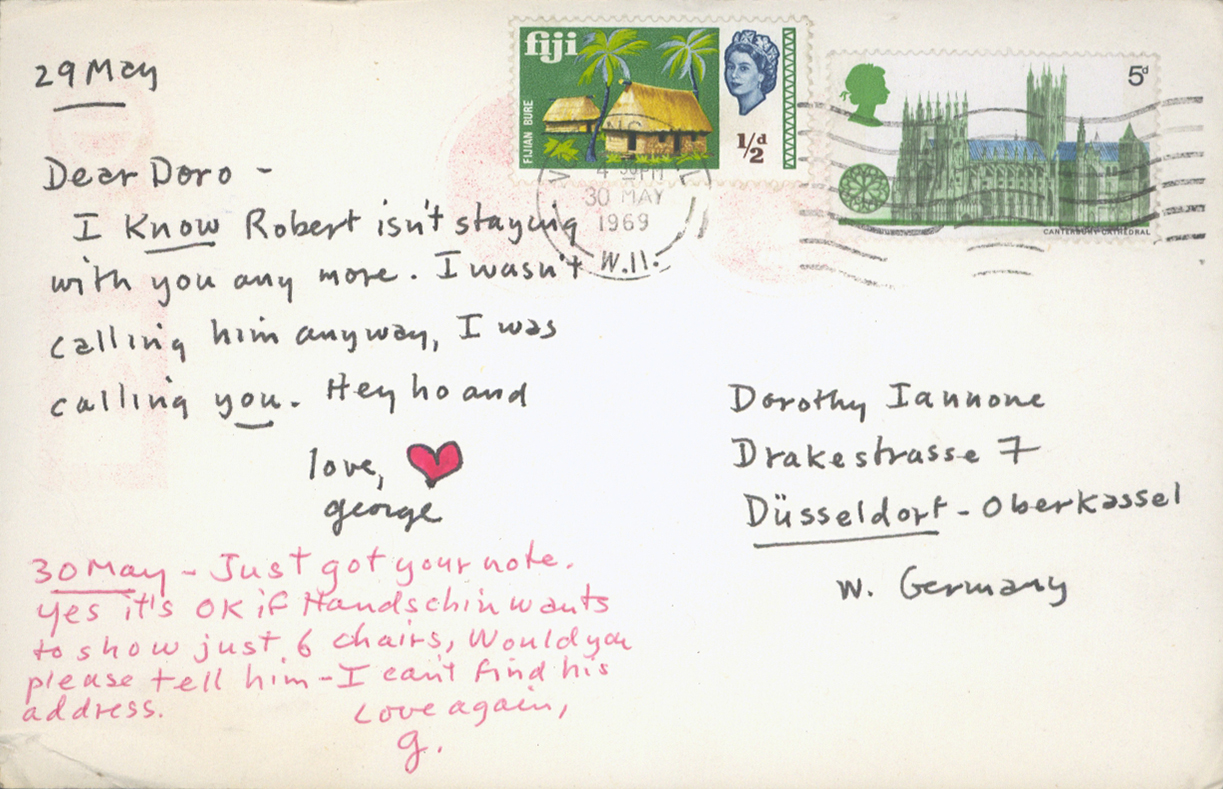 29 May
Dear Doro -
I Know Robert isn't staying
with you any more. I wasn't
calling him anyway, I was
calling you. Hey ho and
love,
george
30 May - Just got your note.
Yes it's OK if Handschin wants
to show just 6 chairs, Would you
please tell him - I can't find his
address.
Love again,
g.
fiji
FIJIAN BURE
1/2d
5d
CANTERBURY CATHEDRAL
4 30 PM
30 MAY
1969
W.11.
Dorothy Iannone
Drakestrasse 7
Düsseldorf - Oberkassel
W. Germany